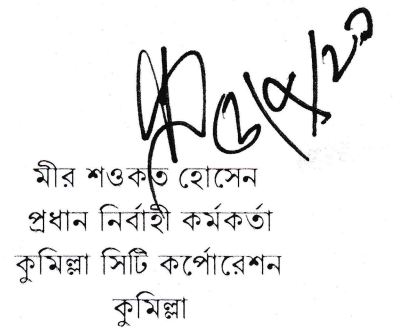 মীর শওকত হোসেন
প্রধান নির্বাহী কর্মকর্তা
কুমিল্লা সিটি কর্পোরেশন
কুমিল্লা